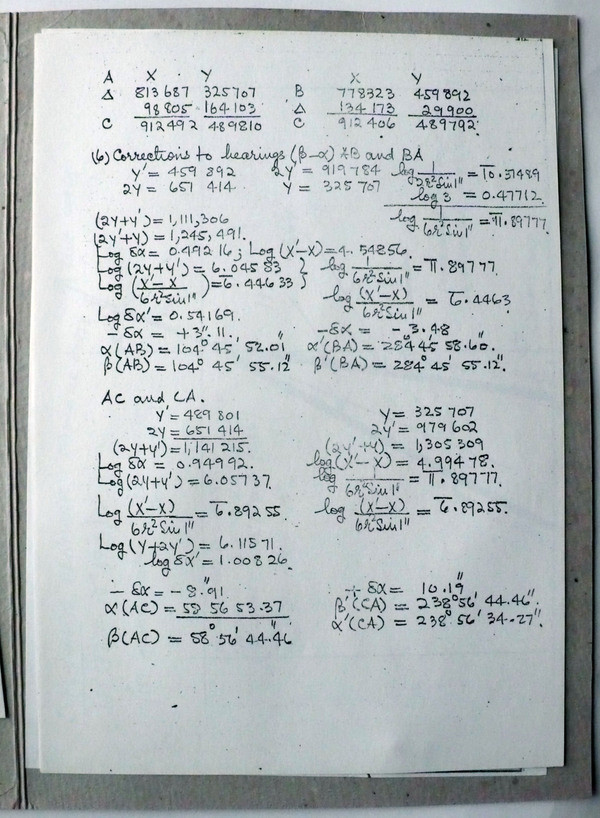 A X Y X Y
Δ 813687 325707 B 778323 459892
98805 164103 Δ 134173 29900
C 912492 489810 C 912406 489792.
(6) Corrections to bearings (β-α) AB and BA
Y' = 459 892 2Y' = 919784 log 1/2r²Sin1" = 1̄0.37489
2Y = 651 414 Y = 325 707 log 3 = 0.47712
log 1/6r²Sin1" = 1̄1.89777.
(2Y+Y') = 1,111,306
(2Y'+Y) = 1,245,491.
Log δα = 0.49216; Log (X'-X) = 4.54856.
Log (2Y+Y') = 6.04583 } log 1/6r²Sin1" = 1̄1.89777.
Log (X'-X/6r²Sin1") = 6̄.44633 } log (X'-X)/6r²Sin1" = 6̄.4463
Log δα' = 0.54169.
- δα = +3".11. - δα = -3".48
α(AB) = 104° 45' 52.01" α'(BA) = 284° 45 58.60".
β(AB) = 104° 45' 55.12" β'(BA) = 284° 45' 55.12".
AC and CA.
Y' = 489 801 Y = 325 707
2Y = 651 414 2Y' = 979 602
(2Y+Y') = 1,141 215. (2Y'+Y) = 1,305 309
Log δα = 0.94992. log (X'-X) = 4.99478.
Log (2Y+Y') = 6.05737. log 1/6r²Sin1" = 1̄1.89777.
Log (X'-X)/6r²Sin1" = 6̄.89255 log (X'-X)/6r²Sin1" = 6̄.89255.
Log (Y+2Y') = 6.11571.
log δα' = 1.00826.
- δα = -8".91 + δα = 10.19"
α(AC) = 58 56 53.37 β'(CA) = 238° 56' 44.46".
β(AC) = 58° 56' 44".46 α'(CA) = 238° 56' 34.27".